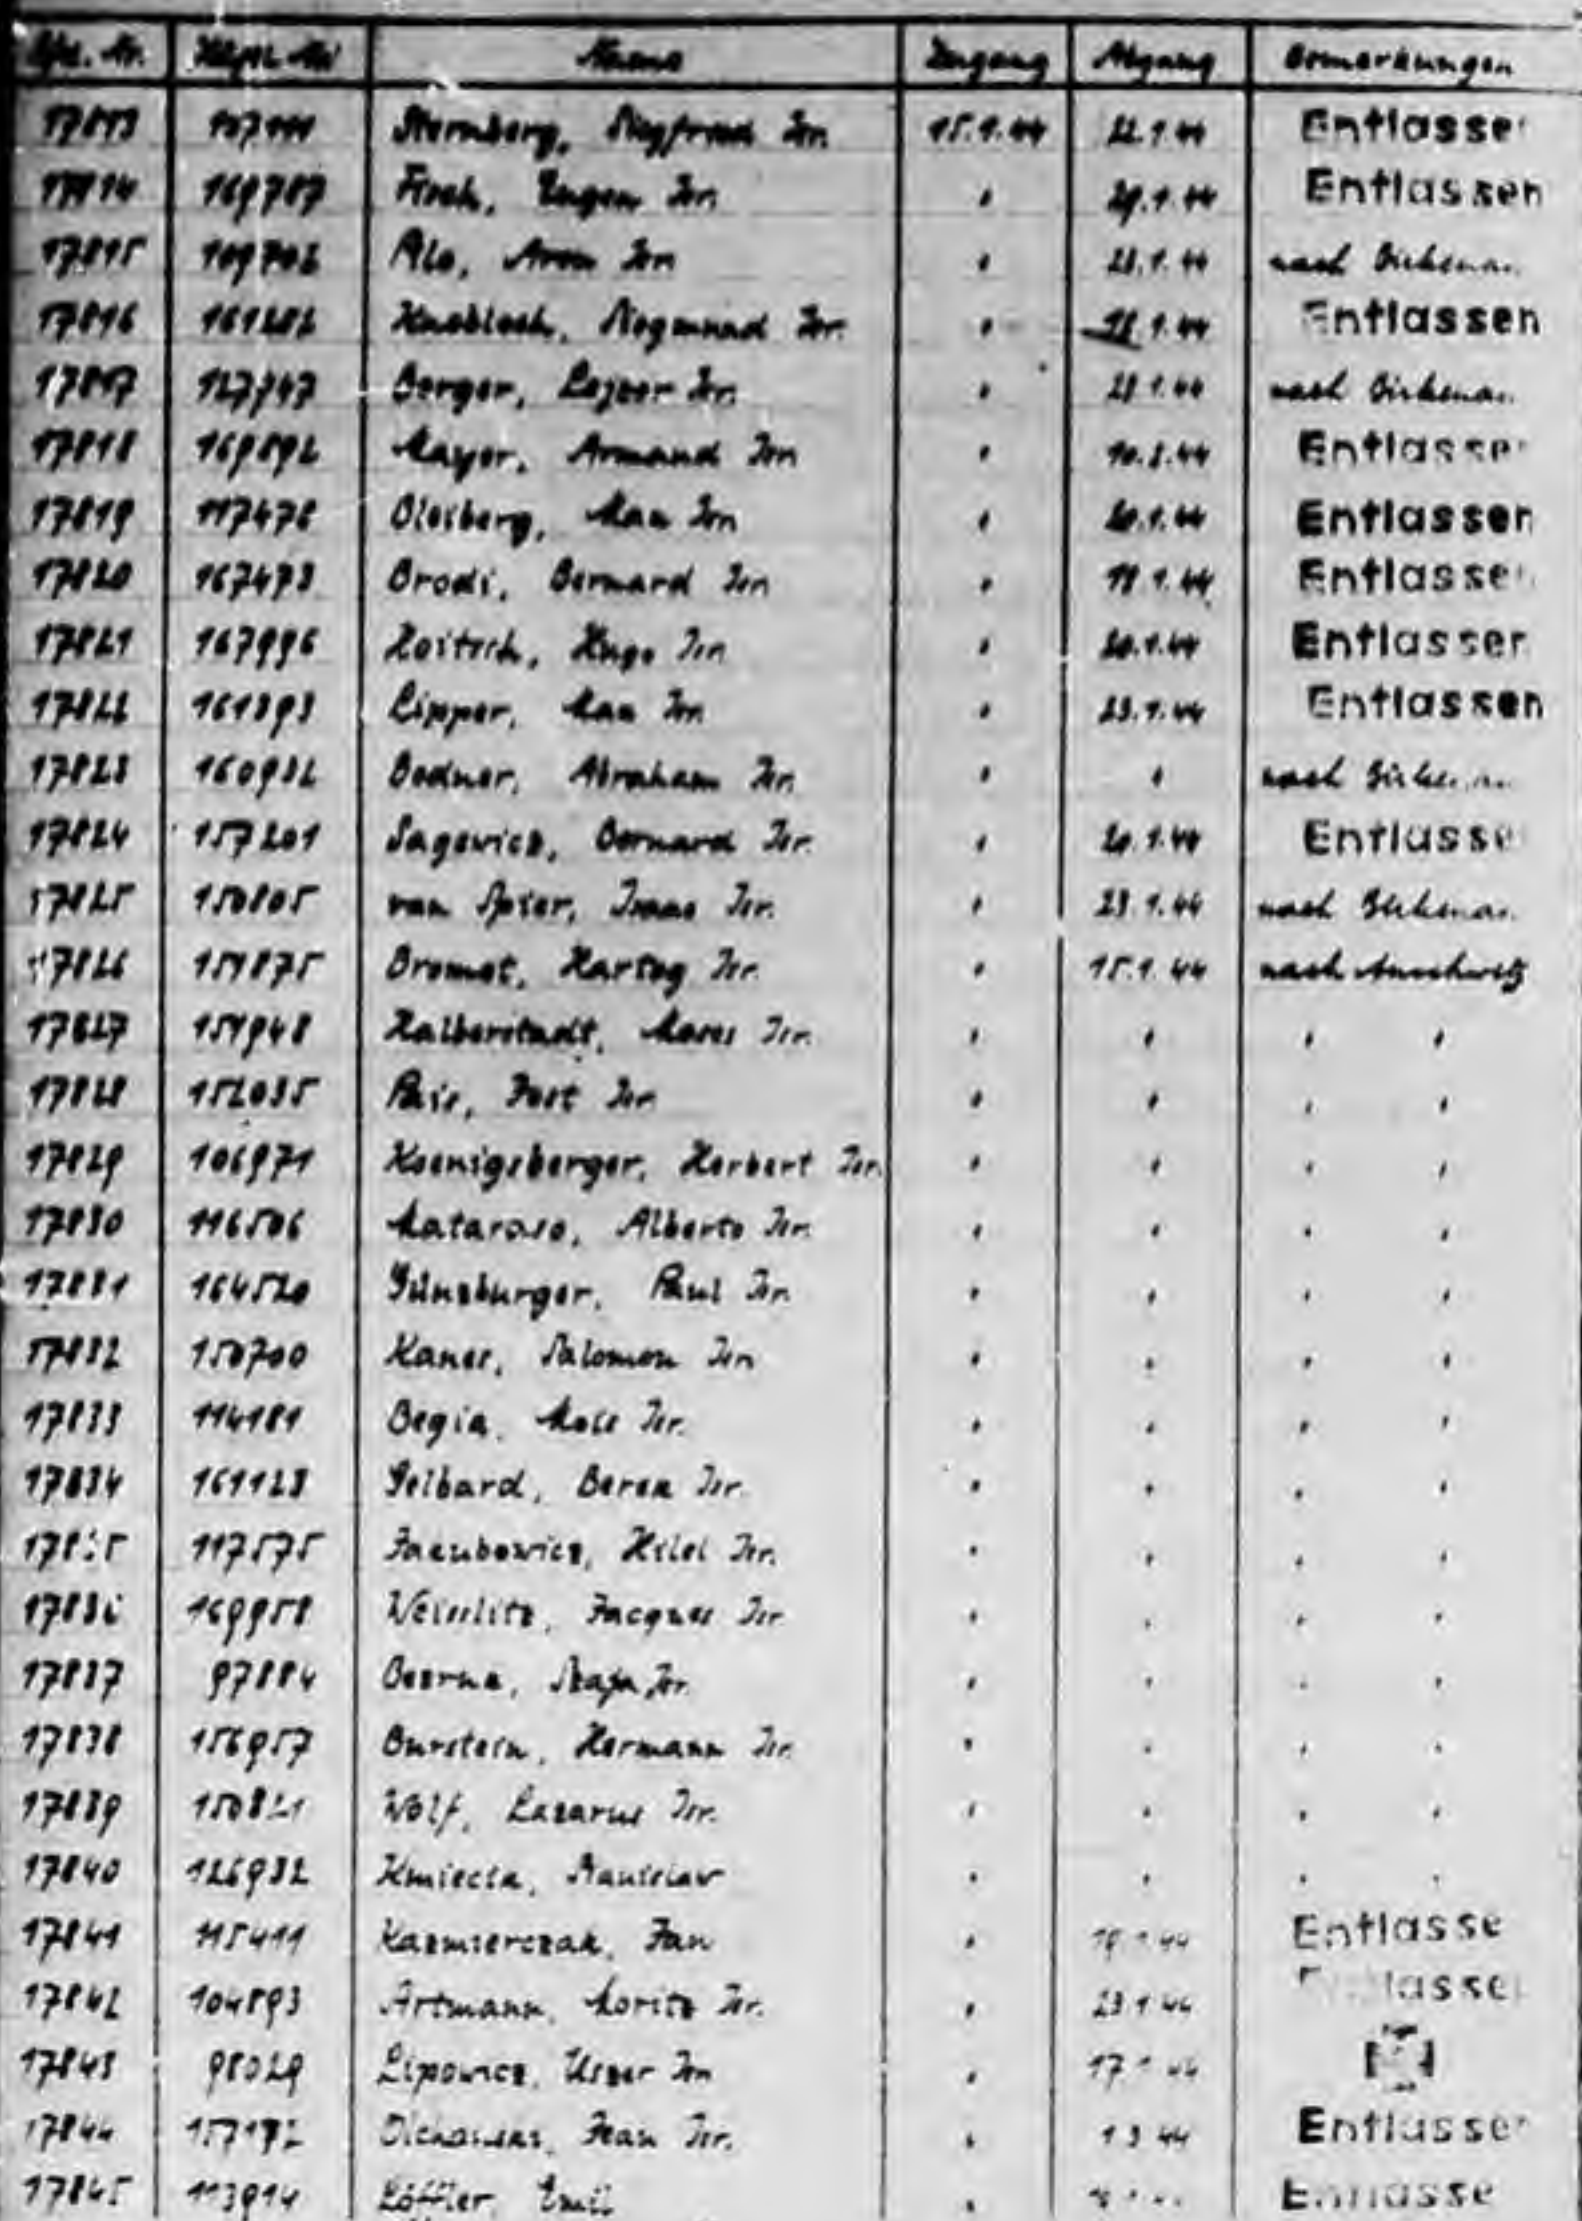 Lfd. Nr. Häftl. Nr. Name Zugang Abgang Bemerkungen
17813 Sternberg, Siegfried Isr. 15.1.44 22.1.44 Entlassen
17814 169707 Eugen Isr. " 29.1.44 Entlassen
17815 Aron Isr. " 23.1.44 nach Birkenau
17816 161282 Knobloch, Isr. " 18.1.44 Entlassen
17817 127747 Berger, Lejzer Isr. " 23.1.44 nach Birkenau
17818 169892 Mayer, Armand Isr. " Entlassen
17819 117476 Max Isr. " 20.1.44 Entlassen
17820 167473 Brodi, Bernard Isr. " 18.1.44 Entlassen
17821 167996 Hugo Isr. " 20.1.44 Entlassen
17822 161393 Lipper, Max Isr. " 23.1.44 Entlassen
17823 160932 Bodner, Abraham Isr. " " nach Birkenau
17824 157201 Sagowicz, Bernard Isr. " 20.1.44 Entlassen
17825 150805 van Spier, Isaac Isr. " 23.1.44 nach Birkenau
17826 151875 Bromet, Hartog Isr. " 15.1.44 nach Auschwitz
17827 151948 Halberstadt, Mozes Isr. " " " "
17828 152035 Pais, Isr. " " " "
17829 106971 Koenigsberger, Herbert Isr. " " " "
17830 116506 Mataraso, Alberto Isr. " " " "
17831 164520 Günzburger, Paul Isr. " " " "
17832 150700 Kaner, Salomon Isr. " " " "
17833 114181 Begia, Isr. " " " "
17834 161123 Gelbard, Berek Isr. " " " "
17835 117575 Jacubowicz, Hilel Isr. " " " "
17836 169958 Jacques Isr. " " " "
17837 97884 Isr. " " " "
17838 156957 Burstein, Hermann Isr. " " " "
17839 150821 Wolf, Lazarus Isr. " " " "
17840 126932 Stanislav " " " "
17841 115411 Kazmierczak, Jan " Entlassen
17842 104893 Artmann, Moritz Isr. " 23.1.44 Entlassen
17843 98029 Lipowicz, Uszer Isr. " 17.1.44
17844 Jean Isr. " 1.3.44 Entlassen
17845 113914 Löffler, Emil " Entlassen